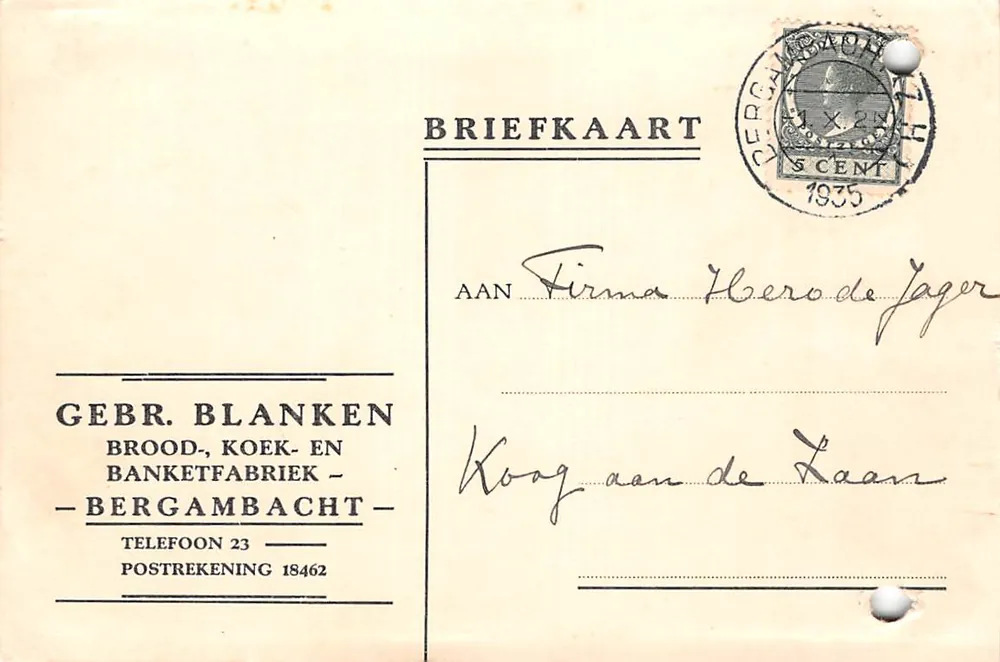 BRIEFKAART
BERGAMBACHT (Z.H.)
1. X. 2
1935
POSTZEGEL
5 CENT
AAN Firma Hero de Jager
Koog aan de Zaan
GEBR. BLANKEN
BROOD-, KOEK- EN
BANKETFABRIEK –
– BERGAMBACHT –
TELEFOON 23
POSTREKENING 18462